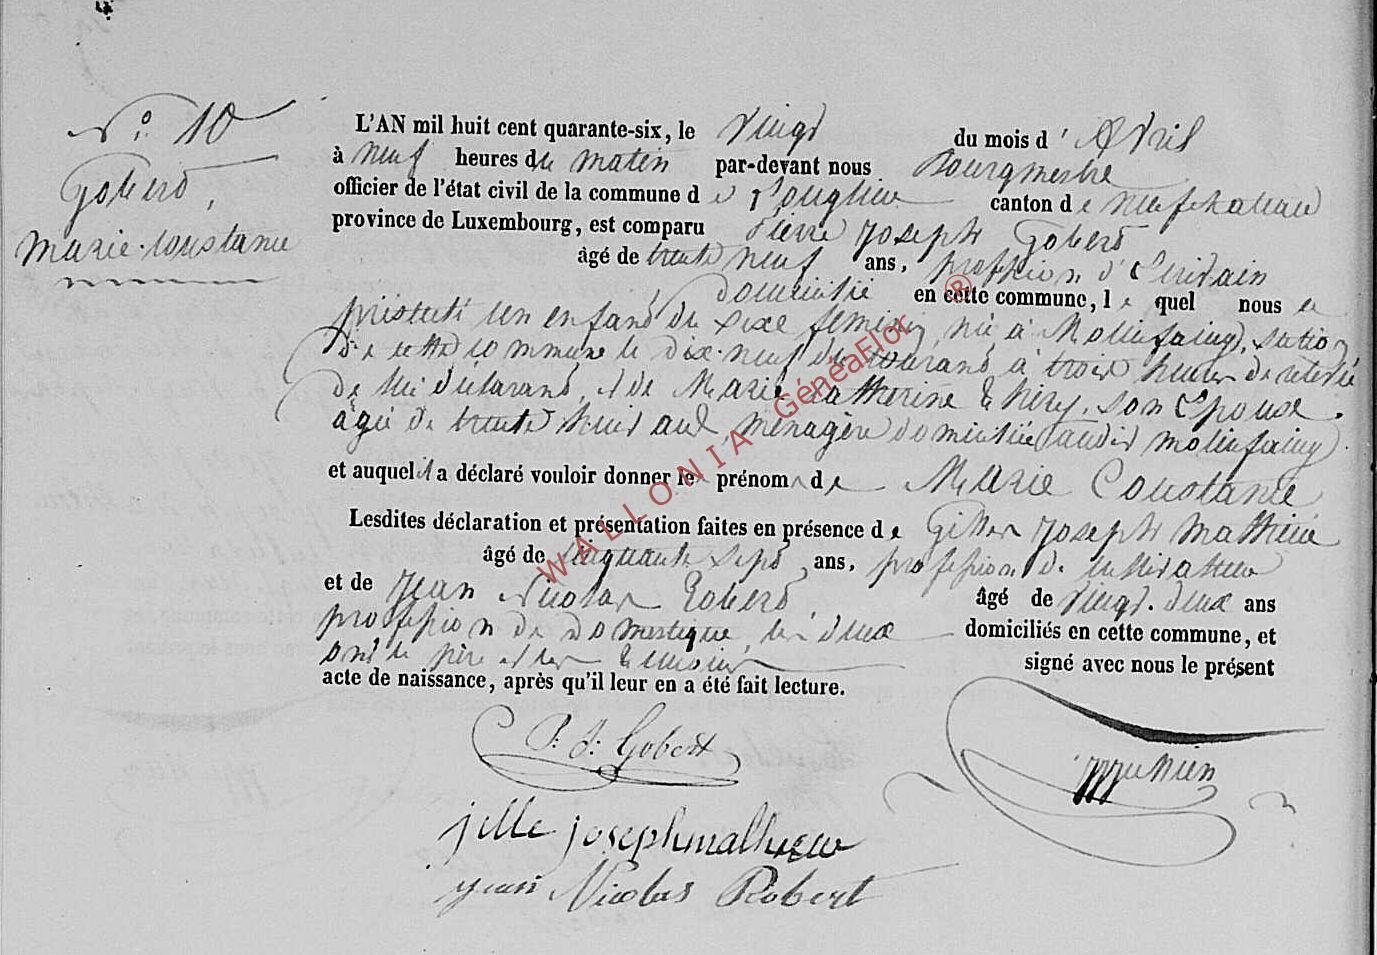 N° 10
Gobert,
Marie-Constance
L'AN mil huit cent quarante-six, le vingt du mois d'Avril
à neuf heures du matin par-devant nous Bourgmestre
officier de l'état civil de la commune de Longlier canton de Neufchateau
province de Luxembourg, est comparu Pierre Joseph Gobert
âgé de trente neuf ans, profession d'Ecrivain
domicilié en cette commune, lequel nous a
présenté un enfant du sexe féminin, née à Molinfaing, section
de cette commune le dix-neuf du courant, à trois heures de relevée
de lui déclarant, et de Marie Catherine Thiry, son Epouse.
âgée de trente huit ans, ménagère domiciliée audit Molinfaing.
et auquel il a déclaré vouloir donner le prénom de Marie Constance
Lesdites déclaration et présentation faites en présence de Gilles Joseph Mathieu
âgé de cinquante sept ans, profession de cultivateur
et de Jean Nicolas Robert, âgé de vingt-deux ans
profession de domestique, les deux domiciliés en cette commune, et
ont le père et les témoins signé avec nous le présent
acte de naissance, après qu'il leur en a été fait lecture.
P: J: Gobert
jille joseph mathieu
jean Nicolas Robert
WALLONIA GénéaFlor ®